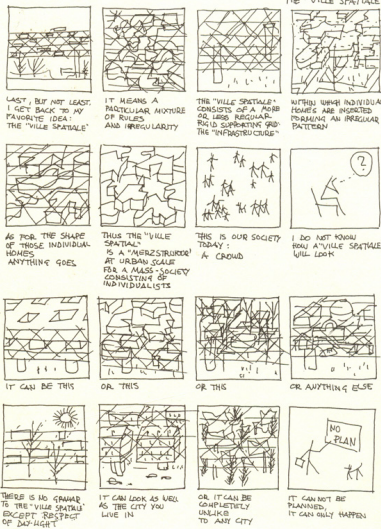 THE "VILLE SPATIALE"
LAST, BUT NOT LEAST.
I GET BACK TO MY
FAVORITE IDEA:
THE "VILLE SPATIALE"
IT MEANS A
PARTICULAR MIXTURE
OF RULES
AND IRREGULARITY
THE "VILLE SPATIALE"
CONSISTS OF A MORE
OR LESS REGULAR
RIGID SUPPORTING GRID
THE "INFRASTRUCTURE"
WITHIN WHICH INDIVIDUAL
HOMES ARE INSERTED
FORMING AN IRREGULAR
PATTERN
AS FOR THE SHAPE
OF THOSE INDIVIDUAL
HOMES
ANYTHING GOES
THUS THE "VILLE
SPATIAL"
IS A "MERZSTRUKTUR"
AT URBAN SCALE
FOR A MASS-SOCIETY
CONSISTING OF
INDIVIDUALISTS
THIS IS OUR SOCIETY
TODAY:
A CROWD
?
I DO NOT KNOW
HOW A "VILLE SPATIALE"
WILL LOOK
IT CAN BE THIS
OR THIS
OR THIS
OR ANYTHING ELSE
THERE IS NO GRAMAR
TO THE "VILLE SPATIALE"
EXCEPT RESPECT
OF DAY-LIGHT
IT CAN LOOK AS WELL
AS THE CITY YOU
LIVE IN
OR IT CAN BE
COMPLETLY
UNLIKE
TO ANY CITY
NO
PLAN
IT CAN NOT BE
PLANNED,
IT CAN ONLY HAPPEN